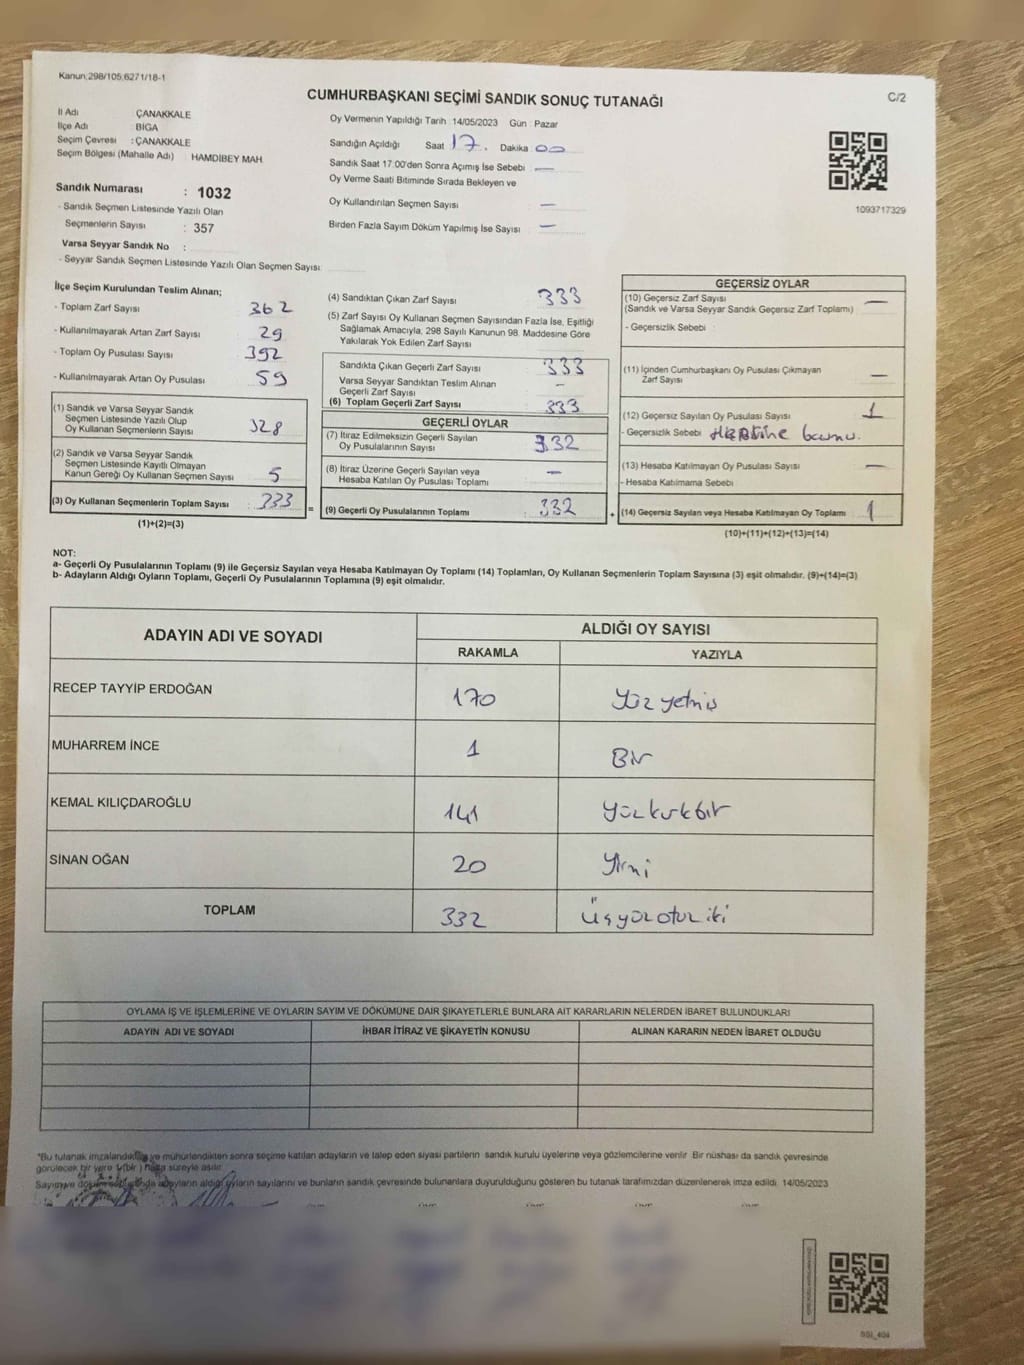 Kanun;298/105;6271/18-1
C/2
CUMHURBAŞKANI SEÇİMİ SANDIK SONUÇ TUTANAĞI
İl Adı ÇANAKKALE
İlçe Adı BİGA
Seçim Çevresi : ÇANAKKALE
Seçim Bölgesi (Mahalle Adı) HAMDİBEY MAH
Sandık Numarası : 1032
- Sandık Seçmen Listesinde Yazılı Olan
Seçmenlerin Sayısı : 357
Varsa Seyyar Sandık No :
- Seyyar Sandık Seçmen Listesinde Yazılı Olan Seçmen Sayısı:
Oy Vermenin Yapıldığı Tarih :14/05/2023 Gün : Pazar
Sandığın Açıldığı Saat 17. Dakika 00
Sandık Saat 17:00'den Sonra Açımış İse Sebebi —
Oy Verme Saati Bitiminde Sırada Bekleyen ve
Oy Kullandırılan Seçmen Sayısı —
Birden Fazla Sayım Döküm Yapılmış İse Sayısı —
1093717329
İlçe Seçim Kurulundan Teslim Alınan;
- Toplam Zarf Sayısı 362
- Kullanılmayarak Artan Zarf Sayısı 29
- Toplam Oy Pusulası Sayısı 392
- Kullanılmayarak Artan Oy Pusulası 59
(1) Sandık ve Varsa Seyyar Sandık
Seçmen Listesinde Yazılı Olup
Oy Kullanan Seçmenlerin Sayısı 328
(2) Sandık ve Varsa Seyyar Sandık
Seçmen Listesinde Kayıtlı Olmayan
Kanun Gereği Oy Kullanan Seçmen Sayısı 5
(3) Oy Kullanan Seçmenlerin Toplam Sayısı : 333 =
(1)+(2)=(3)
(4) Sandıktan Çıkan Zarf Sayısı 333
(5) Zarf Sayısı Oy Kullanan Seçmen Sayısından Fazla İse, Eşitliği
Sağlamak Amacıyla, 298 Sayılı Kanunun 98. Maddesine Göre
Yakılarak Yok Edilen Zarf Sayısı
Sandıkta Çıkan Geçerli Zarf Sayısı 333
Varsa Seyyar Sandıktan Teslim Alınan
Geçerli Zarf Sayısı —
(6) Toplam Geçerli Zarf Sayısı 333
GEÇERLİ OYLAR
(7) İtiraz Edilmeksizin Geçerli Sayılan
Oy Pusulalarının Sayısı 332
(8) İtiraz Üzerine Geçerli Sayılan veya
Hesaba Katılan Oy Pusulası Toplamı —
(9) Geçerli Oy Pusulalarının Toplamı : 332 +
GEÇERSİZ OYLAR
(10) Geçersiz Zarf Sayısı —
(Sandık ve Varsa Seyyar Sandık Geçersiz Zarf Toplamı)
- Geçersizlik Sebebi :
(11) İçinden Cumhurbaşkanı Oy Pusulası Çıkmayan
Zarf Sayısı —
(12) Geçersiz Sayılan Oy Pusulası Sayısı 1
- Geçersizlik Sebebi
(13) Hesaba Katılmayan Oy Pusulası Sayısı —
- Hesaba Katılmama Sebebi
(14) Geçersiz Sayılan veya Hesaba Katılmayan Oy Toplamı 1
(10)+(11)+(12)+(13)=(14)
NOT:
a- Geçerli Oy Pusulalarının Toplamı (9) ile Geçersiz Sayılan veya Hesaba Katılmayan Oy Toplamı (14) Toplamları, Oy Kullanan Seçmenlerin Toplam Sayısına (3) eşit olmalıdır. (9)+(14)=(3)
b- Adayların Aldığı Oyların Toplamı, Geçerli Oy Pusulalarının Toplamına (9) eşit olmalıdır.
ADAYIN ADI VE SOYADI
ALDIĞI OY SAYISI
RAKAMLA YAZIYLA
RECEP TAYYİP ERDOĞAN 170 Yüz yetmiş
MUHARREM İNCE 1 Bir
KEMAL KILIÇDAROĞLU 141 Yüzkırkbir
SİNAN OĞAN 20 Yirmi
TOPLAM 332 Üçyüzotuziki
OYLAMA İŞ VE İŞLEMLERİNE VE OYLARIN SAYIM VE DÖKÜMÜNE DAİR ŞİKAYETLERLE BUNLARA AİT KARARLARIN NELERDEN İBARET BULUNDUKLARI
ADAYIN ADI VE SOYADI İHBAR İTİRAZ VE ŞİKAYETİN KONUSU ALINAN KARARIN NEDEN İBARET OLDUĞU
*Bu tutanak imzalandıktan ve mühürlendikten sonra seçime katılan adayların ve talep eden siyasi partilerin sandık kurulu üyelerine veya gözlemcilerine verilir. Bir nüshası da sandık çevresinde
görülecek bir yere 1 (bir) hafta süreyle asılır.
Sayım ve döküm adayların aldığı oyların sayılarını ve bunların sandık çevresinde bulunanlara duyurulduğunu gösteren bu tutanak tarafımızdan düzenlenerek imza edildi. 14/05/2023